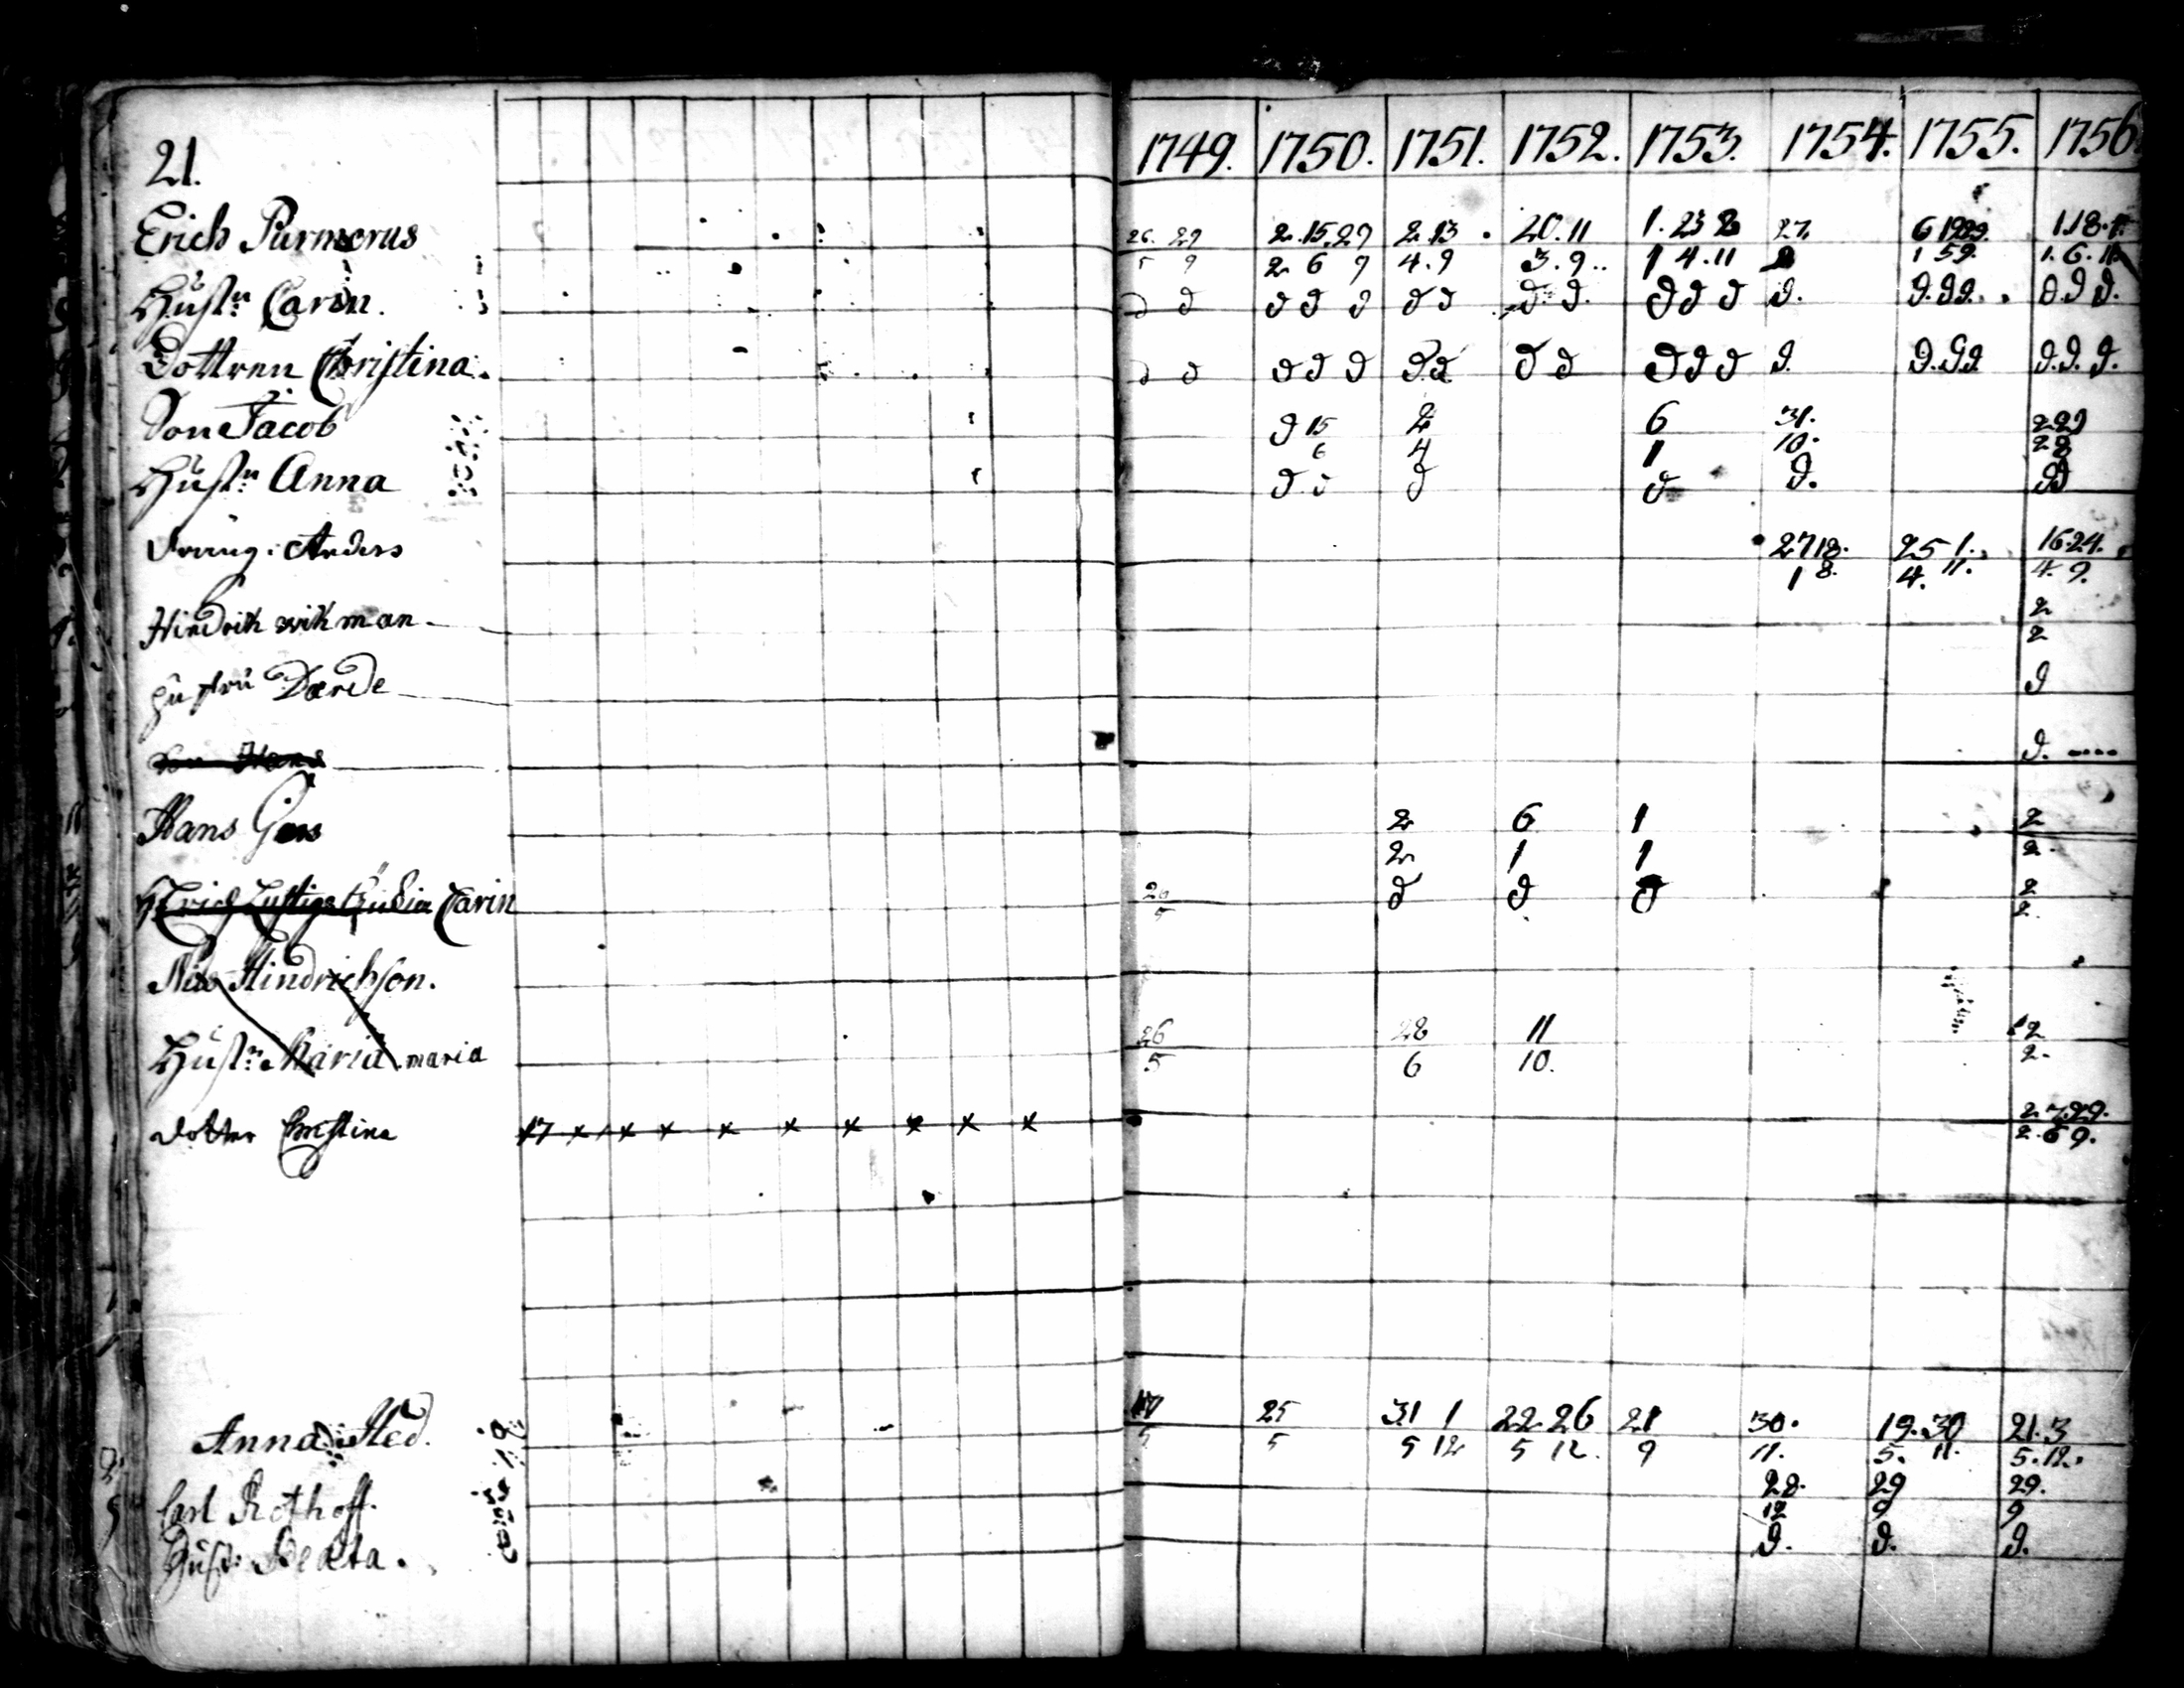 21. 1749. 1750. 1751. 1752. 1753. 1754. 1755. 1756
Erich Purmerus 26. 29 2. 15. 29 2. 13 20. 11 1. 23 27. 6 19 29. 1. 18.
5 9 2 6 9 4. 9 3. 9.. 1 4. 11 1 5 9. 1. 6. 11
Hust: Carin. d d d d d d d d d. d d d d. d. d. d. d. d. d.
Dottren Christina. d d d d d d. d d d d d d d. d. d. d. d. d. d.
Son Jacob d 15 2 6 31. 2 29
6 4 1 10. 2 8
Hustr: Anna d. d d d d. d d
Dräng: Anders 27 18. 25 1. 16. 24.
1 8. 4. 11. 4. 9.
Hindrik wikman 2
2
hustru Dorde d
Son Hans d.
Hans 2 6 1 2
2 1 1 2.
Erich Carin d d d 2
5 2.
Hindrichson.
Hustr: Maria maria 26 28 11 12
5 6 10. 2.
dotter Christina 17 x x x x x x x x x 2. 7. 29.
2. 6 9.
Anna 25 31 1 22. 26 21 30. 19. 30 21. 3
5 5 5 12 5 12. 9 11. 5. 11. 5. 12.
Carl Rothoff. 28. 29 29.
12 9 9
Hust: Beata. d. d. d.